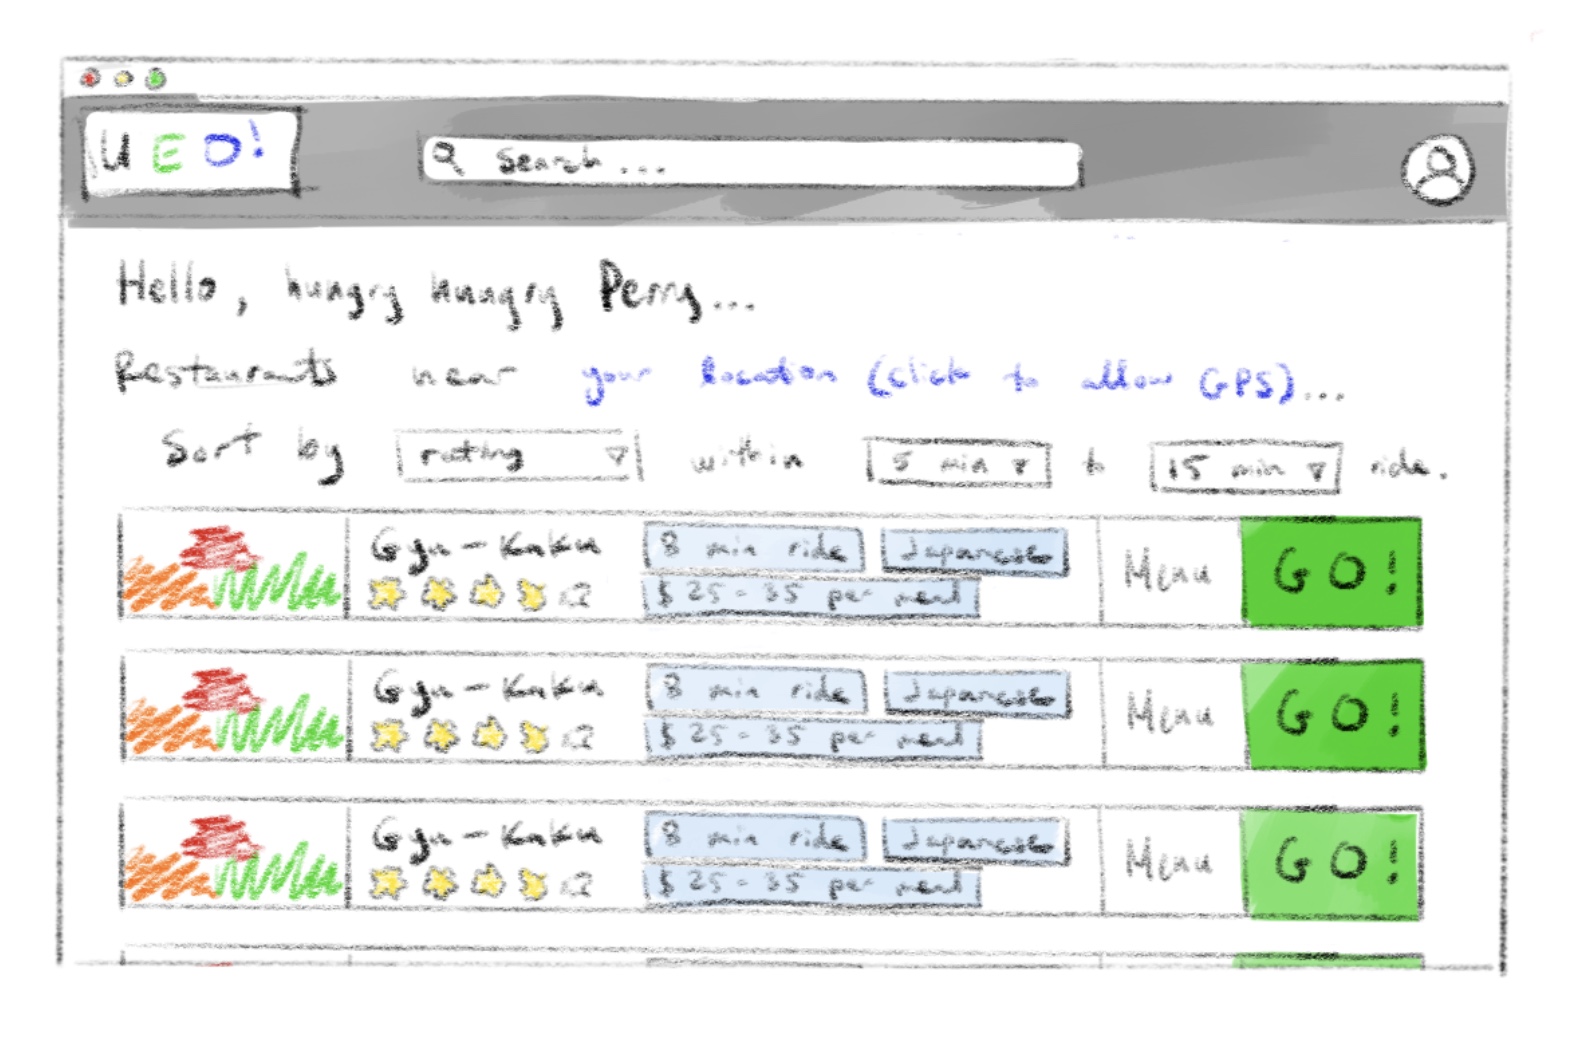 UEO!
Search...
Hello, hungry hungry Perry...
Restaurants near your location (click to allow GPS)...
Sort by rating within 5 min to 15 min ride.
Gyu-Kaku 8 min ride Japanese Menu GO!
$25-35 per meal
Gyu-Kaku 8 min ride Japanese Menu GO!
$25-35 per meal
Gyu-Kaku 8 min ride Japanese Menu GO!
$25-35 per meal